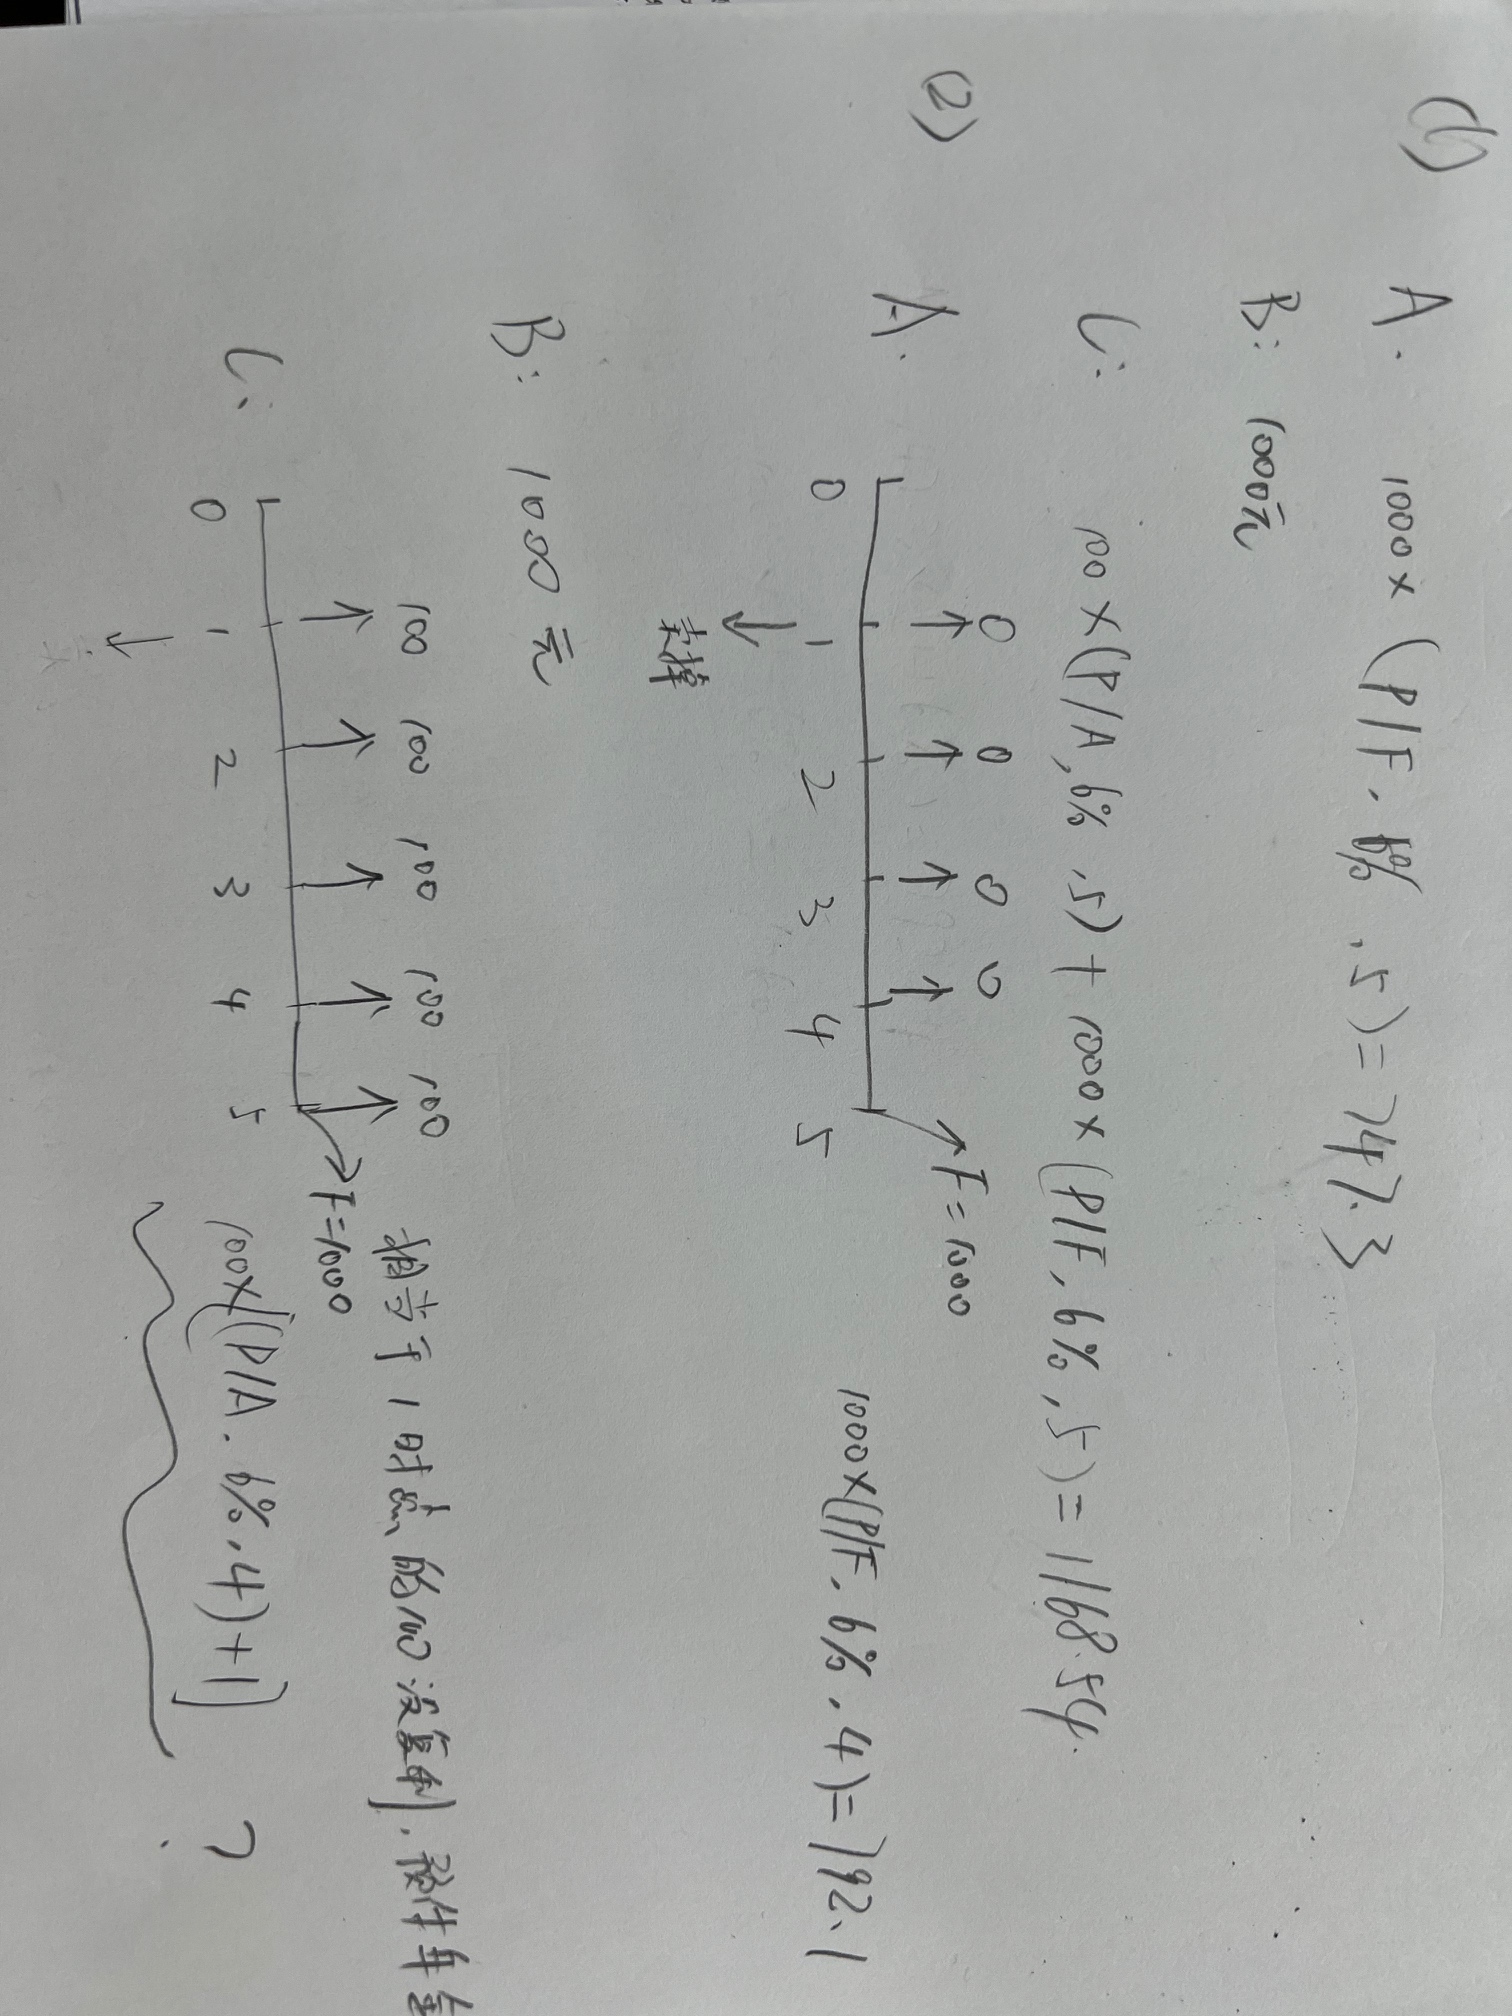 (1) A. 1000×(P/F.6%.5)=747.3
B: 1000元
C: 100×(P/A,6%,5)+1000×(P/F,6%,5)=1168.54.
(2) A.
0 0 0 0 F=1000
0 1 2 3 4 5
卖掉
1000×(P/F.6%,4)=792.1
B: 1000元
C:
100 100 100 100 100
F=1000
0 1 2 3 4 5
相当于1时点的100没复利,预付年金
100×[(P/A.6%.4)+1] ?